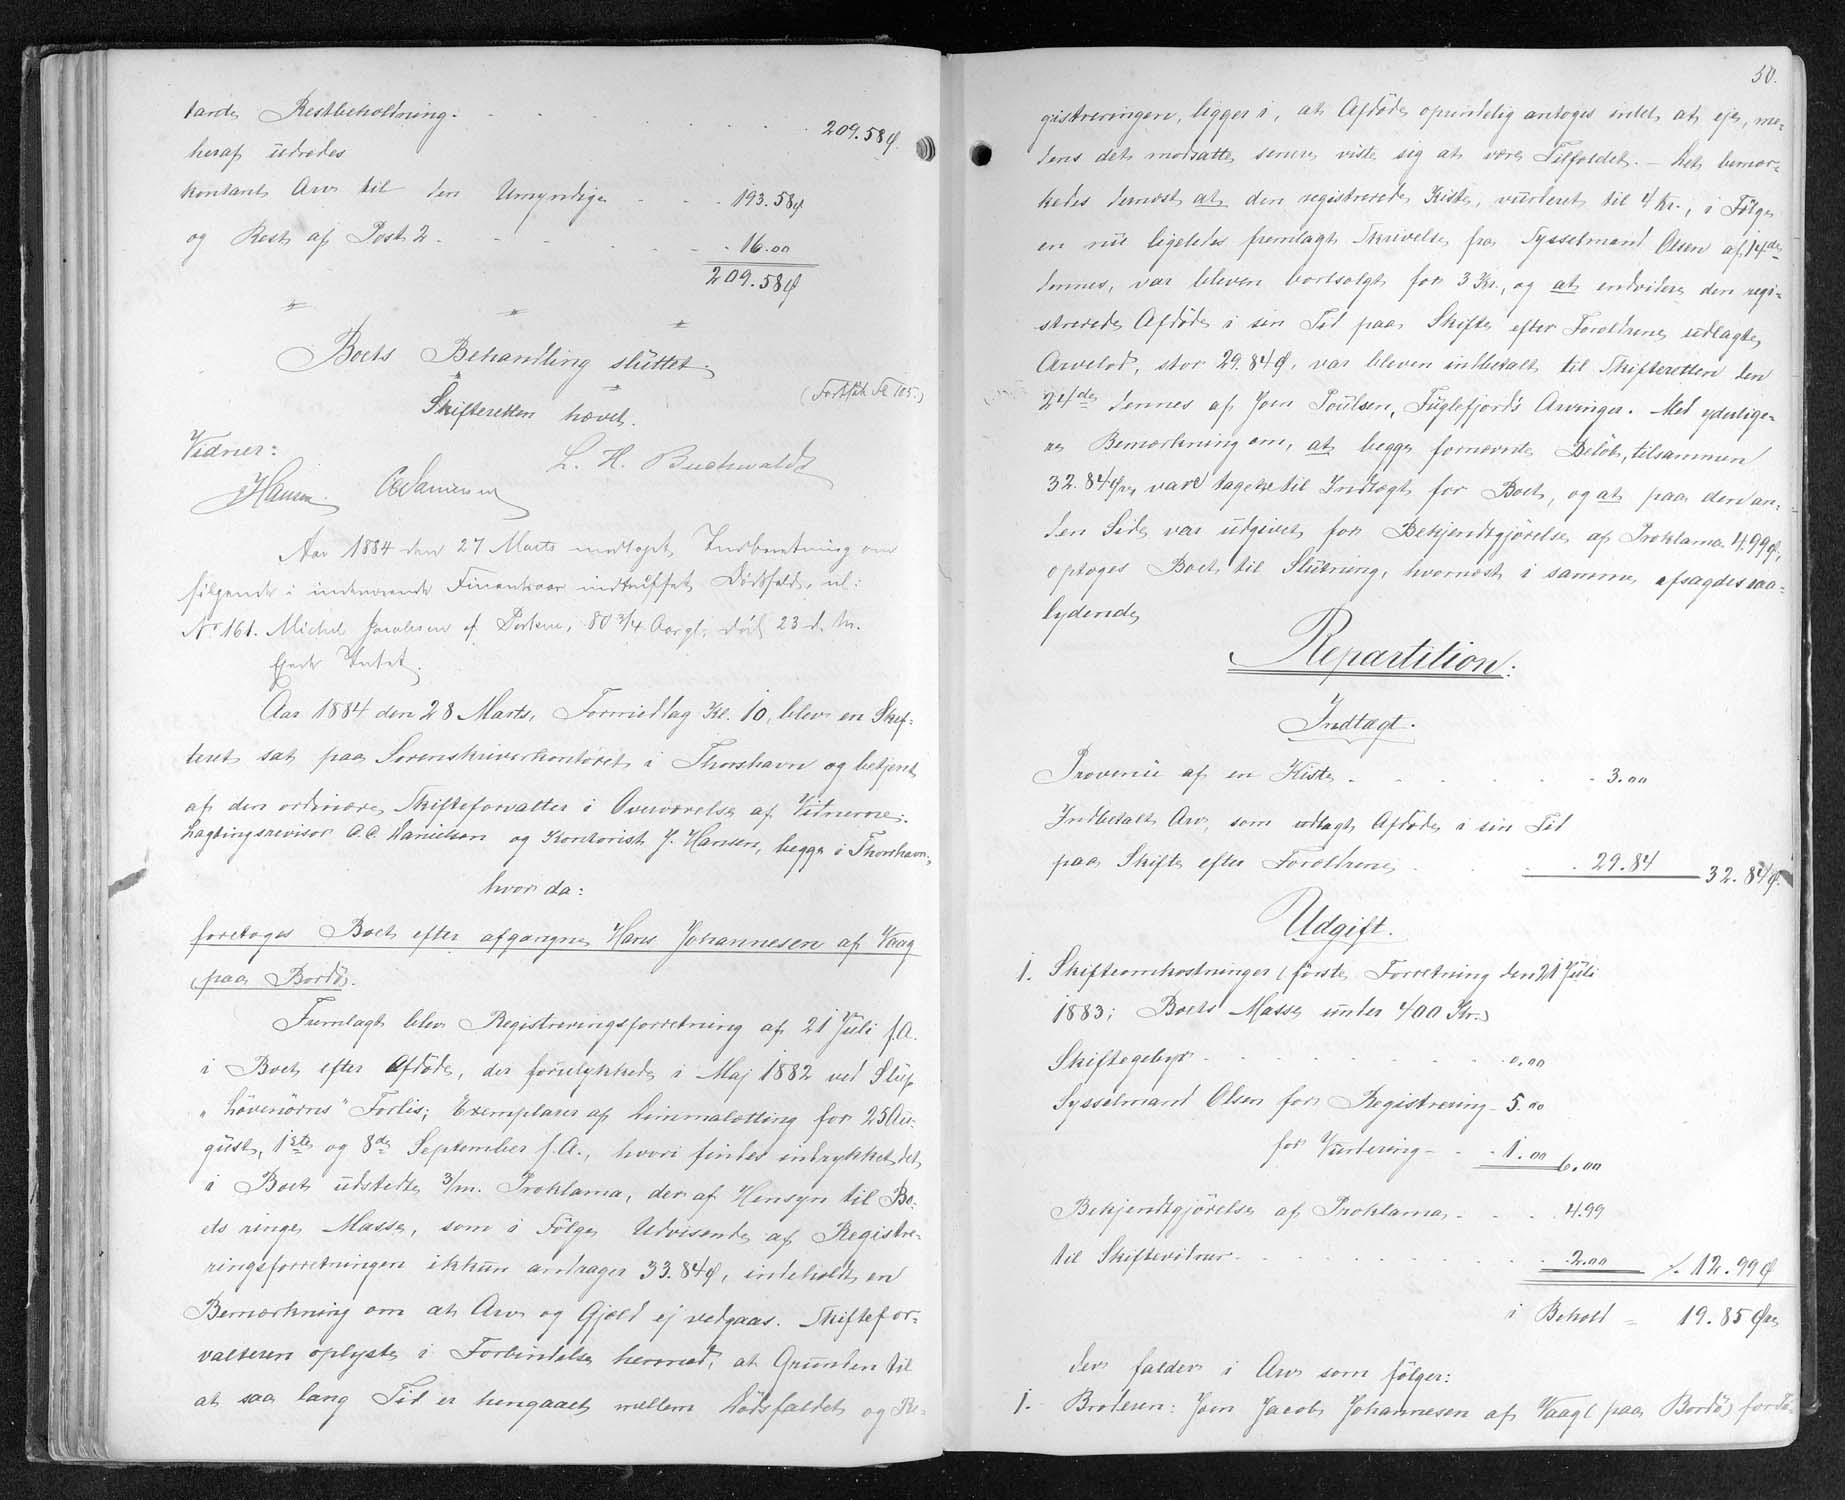 tarde Restbeholdning . . . . . 209.58 Ø.
heraf udredes
kontant Arv til den Umyndige . . . 193.58 Ø
og Rest af Post 2 . . . . . 16.00
209.58 Ø
Boets Behandling sluttet.
(Forts. pk Fol. 105.)
Skifteretten hævet.
L. H. Buchwaldt
Vidner:
JHansen. CDanielsen
Aar 1884 den 27 Marts modtoges Indberetning om
følgende i indeværende Finantsaar indtruffet Dødsfald, nl:
No 161. Michel Jacobsen af Porkere, 80 3/4 Aar gl. død 23 d. M.
Ejede Intet.
Aar 1884 den 28 Marts, Formiddag Kl. 10, blev en Skif-
teret sat paa Sorenskriverkontoret i Thorshavn og betjent
af den ordinære Skifteforvalter i Overværelse af Vidnerne:
Lagtingsrevisor A. C. Danielsen og Kontorist J. Hansen, begge i Thorshavn,
hvor da:
foretoges Boet efter afgangne Hans Johannesen af Vaag
paa Bordø.
Fremlagt blev Registreringsforretning af 21 Juli f. A.
i Boet efter Afdøde, der forulykkede i Maj 1882 ved Slup
„Løvenørns" Forlis; Exemplarer af Dimmalætting for 25 Au-
gust, 1ste og 8de September f. A., hvori findes indrykket det
i Boet udstedte 3/m. Proklama, der af Hensyn til Bo-
ets ringe Masse, som i Følge Udvisende af Registre-
ringsforretningen ikkun andrager 33.84 Ø, indeholdt en
Bemærkning om at Arv og Gjæld ej vedgaas. Skiftefor-
valteren oplyste i Forbindelse hermed, at Grunden til
at saa lang Tid er hengaaet mellem Dødsfaldet og Re-
50.
gistreringen, ligger i, at Afdøde oprindelig antoges intet at eje, me-
dens det modsatte senere viste sig at være Tilfældet. – Det bemær-
kedes dernæst at den registrerede Kiste, vurderet til 4 Kr., i Følge
en nu ligeledes fremlagt Skrivelse fra Sysselmand Olsen af 14de
dennes, var bleven bortsolgt for 3 Kr., og at endvidere den regi-
strerede Afdøde i sin Tid paa Skifte efter Forældrene udlagte
Arvelod, stor 29.84 Ø, var bleven indbetalt til Skifteretten den
24de dennes af Joen Poulsen, Fuglefjord's Arvinger. Med yderlige-
re Bemærkning om, at begge fornævnte Beløb, tilsammen
32.84 Øre vare tagne til Indtægt for Boet, og at paa den an-
den Side var udgivet for Bekjendtgjørelse af Proklama 4.99 Ø,
optoges Boet til Slutning, hvornæst i samme afsagdes saa-
lydende
Repartition:
Indtægt.
Provenu af en Kiste . . . . . 3.00
Indbetalt Arv, som udlagt Afdøde i sin Tid
paa Skifte efter Forældrene . . . 29.84 32.84 Ø.
Udgift.
1. Skifteomkostninger (første Forretning den 21 Juli
1883; Boets Masse under 400 Kr.)
Skiftegebyr . . . . . 0.00
Sysselmand Olsen for Registrering - 5.00
for Vurdering - - 1.00 6.00
Bekjendtgjørelse af Proklama . . . 4.99
til Skiftevidner . . . . . 2.00 /. 12.99 Ø
i Behold = 19.85 Øre
der falder i Arv som følger:
1. Broderen: Joen Jacob Johannesen af Vaag (paa Bordø)